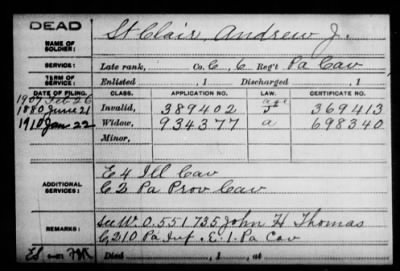 DEAD
NAME OF SOLDIER: St Clair, Andrew J.
SERVICE: Late rank, Co. C, 6 Reg't Pa Cav
TERM OF SERVICE: Enlisted , 1 Discharged , 1
DATE OF FILING. CLASS. APPLICATION NO. LAW. CERTIFICATE NO.
1907 Feb 26 age
1880 June 21 Invalid, 389402 369413
1910 Jan 22 Widow, 934377 a 698340
Minor,
ADDITIONAL SERVICES: E 4 Ill Cav
C 3 Pa Prov Cav
REMARKS: See W.O. 551735 John H Thomas
C, 210 Pa Inf. E. 1. Pa Cav
Died , 1 , at